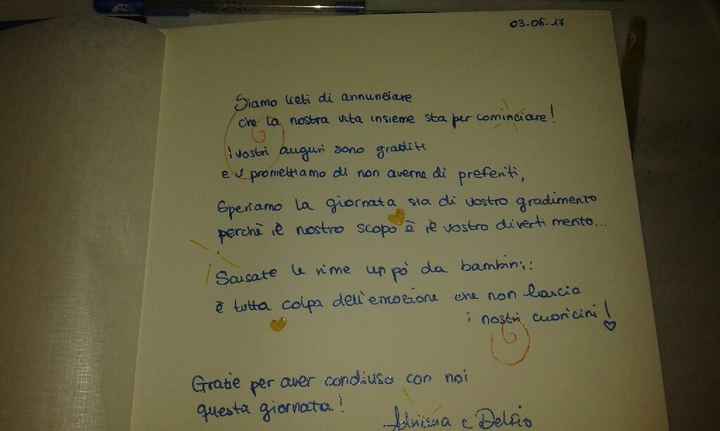 03.06.17
Siamo lieti di annunciare
che la nostra vita insieme sta per cominciare!
i vostri auguri sono graditi
e vi promettiamo di non averne di preferiti,
Speriamo la giornata sia di vostro gradimento
perchè il nostro scopo è il vostro divertimento...
Scusate le rime un pò da bambini:
è tutta colpa dell'emozione che non lascia
i nostri cuoricini!
Grazie per aver condiviso con noi
questa giornata!
e Delfio